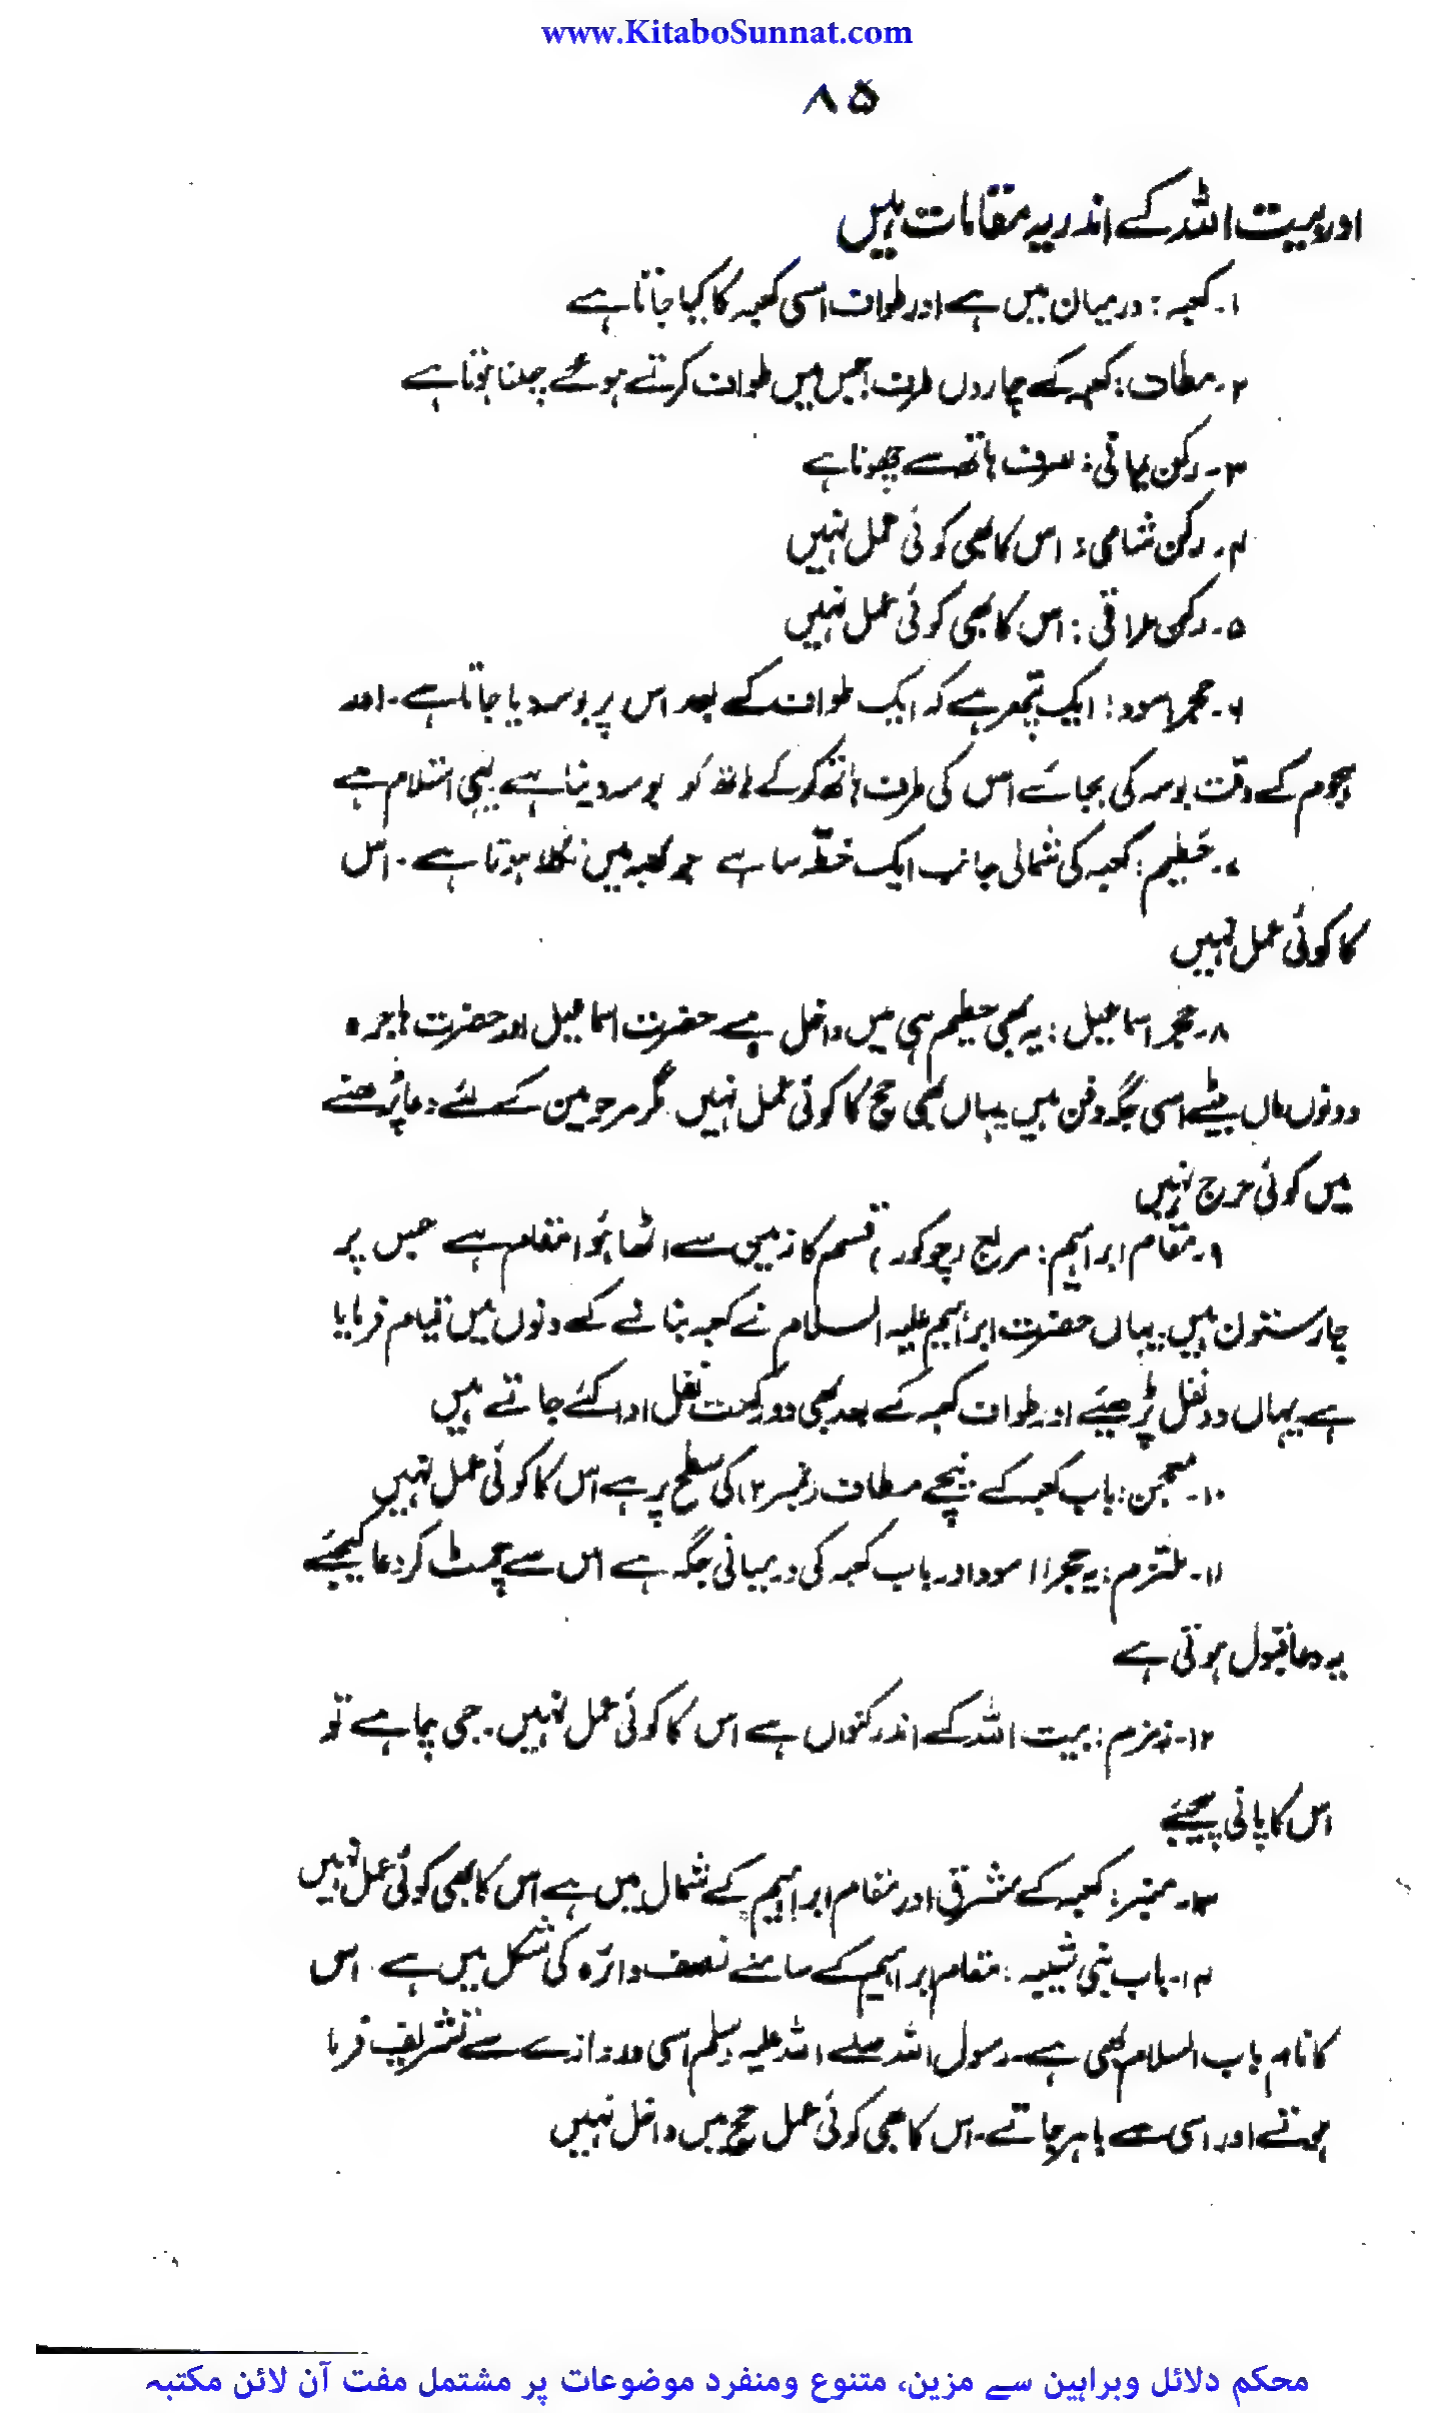 www.KitaboSunnat.com
۸۵
اور بیت اللہ کے اندر یہ مقامات ہیں
۱۔ کعبہ : درمیان میں ہے اور طواف اسی کعبہ کا کیا جاتا ہے
۲۔ مطاف : کعبہ کے چاروں طرف جس میں طواف کرتے ہوئے چلنا ہوتا ہے
۳۔ رکن یمانی : صرف ہاتھ سے چھونا ہے
۴۔ رکن شامی : اس کا بھی کوئی عمل نہیں
۵۔ رکن عراقی : اس کا بھی کوئی عمل نہیں
۶۔ حجر اسود : ایک پتھر ہے کہ ایک طواف کے بعد اس پر بوسہ دیا جاتا ہے۔ اور
ہجوم کے وقت بوسہ کی بجائے اس کی طرف ہاتھ کر کے ہاتھ کو بوسہ دینا ہے یہی استلام ہے
۷۔ حطیم : کعبہ کی شمالی جانب ایک خطہ سا ہے جو کعبہ میں نکلا ہوتا ہے۔ اس
کا کوئی عمل نہیں
۸۔ حجر اسماعیل : یہ بھی حطیم ہی میں داخل ہے حضرت اسماعیل اور حضرت ہاجرہ
دونوں ماں بیٹے اسی جگہ دفن ہیں یہاں بھی حج کا کوئی عمل نہیں مگر مرحومین کے لئے دعا پڑھنے
میں کوئی حرج نہیں
۹۔ مقام ابراہیم : مربع (چوکور) قسم کا زمین سے اٹھا ہوا مقام ہے جس پر
چار ستون ہیں یہاں حضرت ابراہیم علیہ السلام نے کعبہ بنانے کے دنوں میں قیام فرمایا
ہے یہاں دو نفل پڑھیئے اور طواف کعبہ کے بعد بھی دو رکعت نفل ادا کئے جاتے ہیں
۱۰۔ معجن : باب کعبہ کے نیچے مطاف (نمبر ۲) کی سطح پر ہے اس کا کوئی عمل نہیں
۱۱۔ ملتزم : یہ حجر اسود اور باب کعبہ کی درمیانی جگہ ہے اس سے چمٹ کر دعا کیجئے
یہ دعا قبول ہوتی ہے
۱۲۔ زمزم : بیت اللہ کے اندر کنواں ہے اس کا کوئی عمل نہیں۔ جی چاہے تو
اس کا پانی پیجئے
۱۳۔ ممبر : کعبہ کے مشرق اور مقام ابراہیم کے شمال میں ہے اس کا بھی کوئی عمل نہیں
۱۴۔ باب بنی شیبہ : مقام ابراہیم کے سامنے نصف دائرہ کی شکل میں ہے۔ اس
کا نام باب السلام بھی ہے۔ رسول اللہ صلے اللہ علیہ وسلم اسی دروازے سے تشریف فرما
ہوتے اور اسی سے باہر جاتے۔ اس کا بھی کوئی عمل حج میں داخل نہیں
محکم دلائل وبراہین سے مزین، متنوع ومنفرد موضوعات پر مشتمل مفت آن لائن مکتبہ